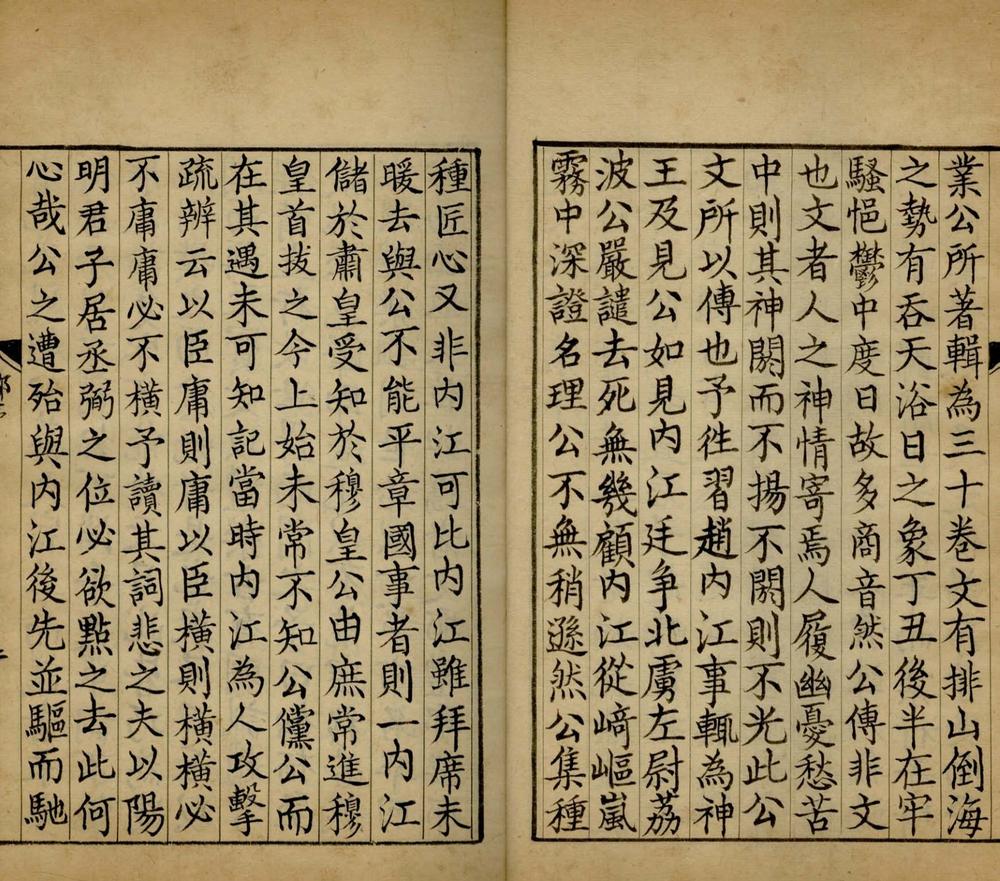 業公所著輯為三十巻文有排山倒海
之勢有吞天浴日之象丁丑後半在牢
騷悒鬱中度日故多商音然公傳非文
也文者人之神情寄焉人履幽憂愁苦
中則其神閼而不揚不閼則不光此公
文所以傳也予徃習趙内江事輒為神
王及見公如見内江廷争北虜左尉荔
波公嚴譴去死無幾顧内江從﨑嶇嵐
霧中深證名理公不無稍遜然公集種
種匠心又非内江可比内江雖拜席未
暖去與公不能平章國事者則一内江
儲於肅皇受知於穆皇公由庶常進穆
皇首拔之今上始未常不知公儻公而
在其遇未可知記當時内江為人攻擊
疏辨云以臣庸則庸以臣橫則橫橫必
不庸庸必不橫予讀其詞悲之夫以陽
明君子居丞弼之位必欲點之去此何
心哉公之遭殆與内江後先並驅而馳